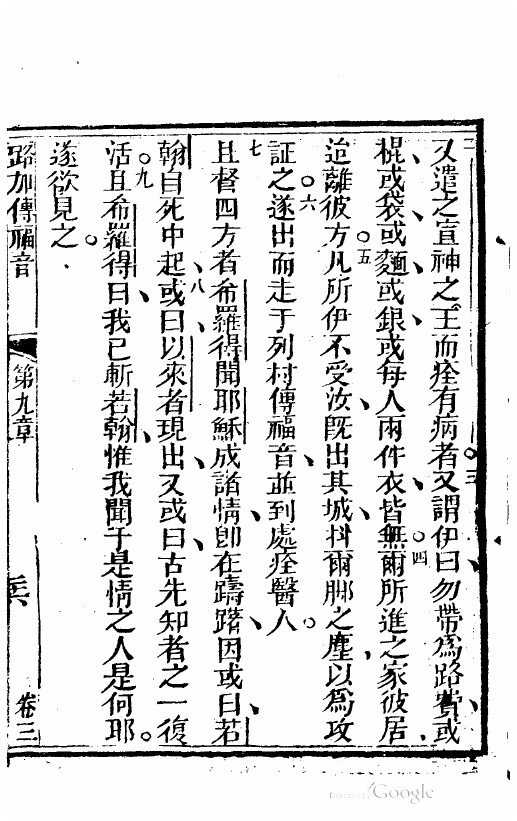 又遣之宣神之王而痊有病者又謂伊曰勿帶爲路費或
棍或袋或麵或銀或每人兩件衣皆無爾所進之家彼居
迨離彼方凡所伊不受汝旣出其城抖爾脚之塵以爲攻
証之遂出而走于列村傳福音並到處痊醫人
且督四方者希羅得聞耶穌成諸情卽在躊躇因或曰若
翰自死中起或曰以來者現出又或曰古先知者之一復
活且希羅得曰我已斬若翰惟我聞于是情之人是何耶
遂欲見之
路加傳福音 第九章 卷三
三
四
五
六
七
八
九
Google